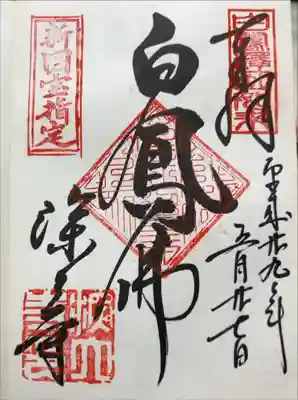 奉拝
平成廿九年
五月廿七日
白鳳佛
新国宝指定
深大寺